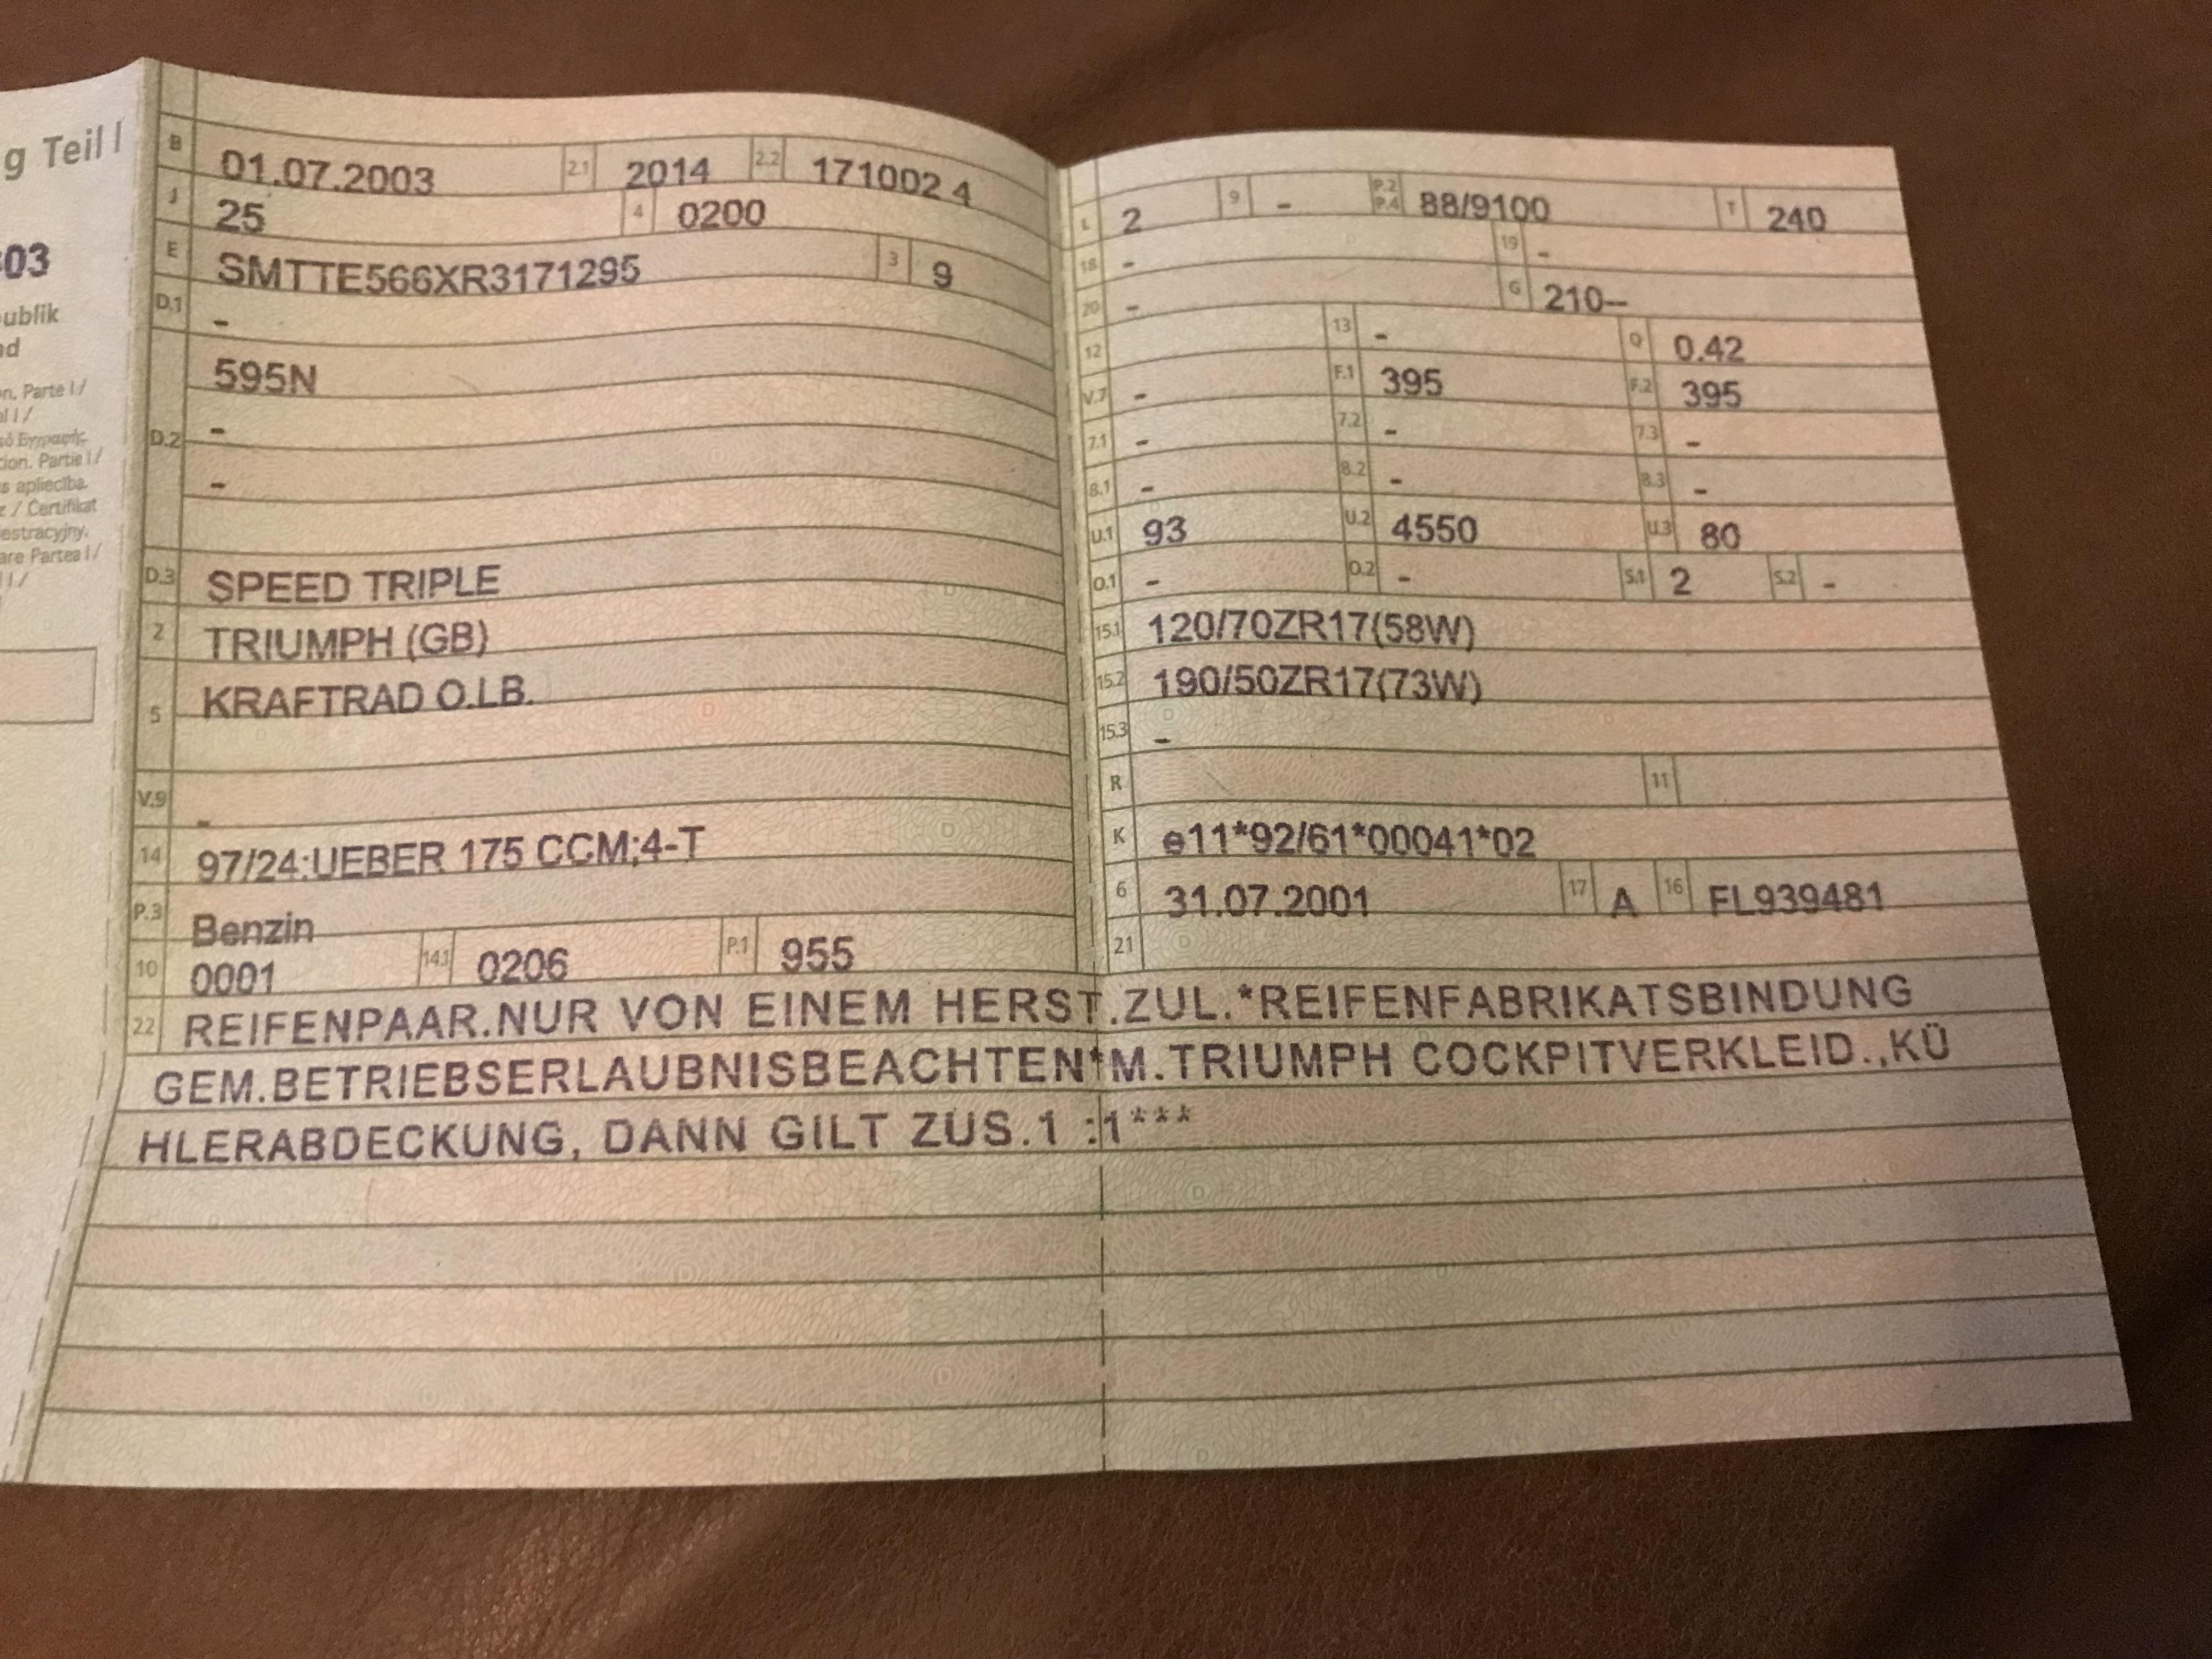 g Teil I
03
ublik
nd
on. Parte I /
al I /
tion. Partie I /
s apliecība.
z / Certifikat
estracyjny.
are Partea I /
I I /
B 01.07.2003 2.1 2014 2.2 171002 4
J 25 4 0200
E SMTTE566XR3171295 3 9
D.1 -
595N
D.2 -
-
D.3 SPEED TRIPLE
2 TRIUMPH (GB)
5 KRAFTRAD O.LB.
V.9 -
14 97/24:UEBER 175 CCM;4-T
P.3 Benzin
10 0001 14.1 0206 P.1 955
L 2 9 - P.2 P.4 88/9100 T 240
18 - 19 -
20 - G 210--
12 13 - Q 0.42
V.7 - F.1 395 F.2 395
7.1 - 7.2 - 7.3 -
8.1 - 8.2 - 8.3 -
U.1 93 U.2 4550 U.3 80
O.1 - O.2 - S.1 2 S.2 -
15.1 120/70ZR17(58W)
15.2 190/50ZR17(73W)
15.3 -
R 11
K e11*92/61*00041*02
6 31.07.2001 17 A 16 FL939481
21
22 REIFENPAAR.NUR VON EINEM HERST.ZUL.*REIFENFABRIKATSBINDUNG
GEM.BETRIEBSERLAUBNISBEACHTEN*M.TRIUMPH COCKPITVERKLEID.,KÜ
HLERABDECKUNG, DANN GILT ZUS.1 :1***